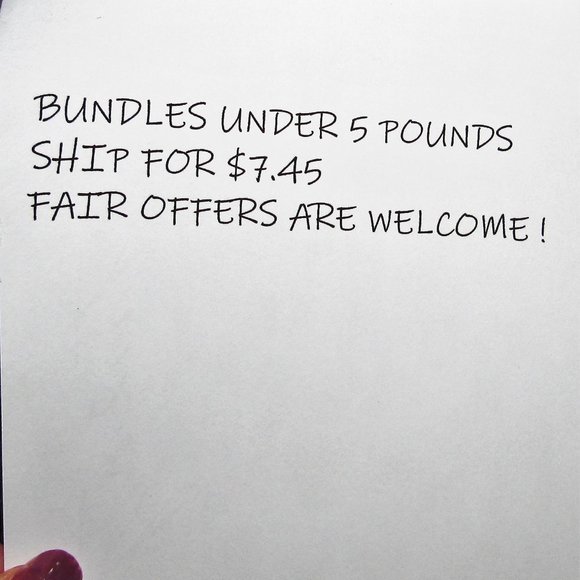 BUNDLES UNDER 5 POUNDS
SHIP FOR $7.45
FAIR OFFERS ARE WELCOME !